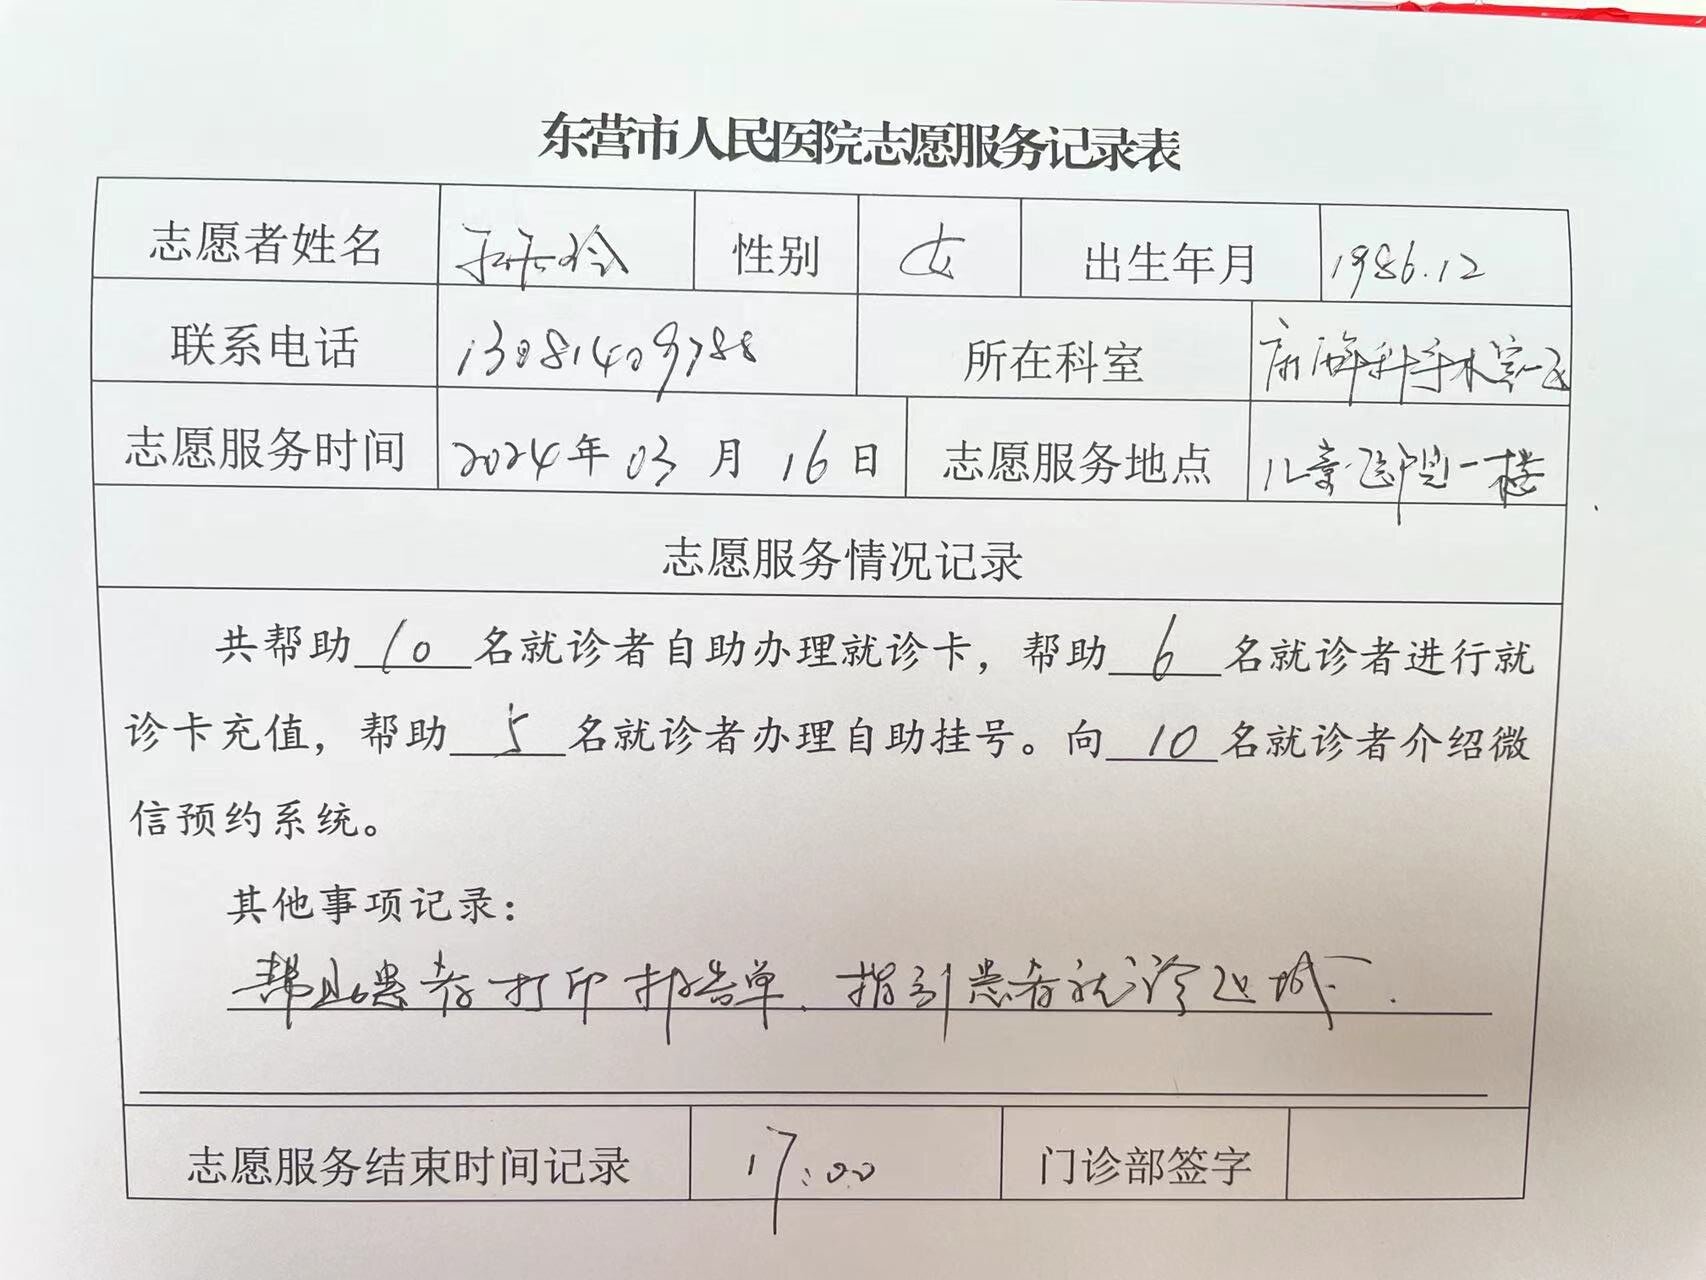 东营市人民医院志愿服务记录表
志愿者姓名 性别 女 出生年月 1986.12
联系电话 13081409788 所在科室 麻醉科手术室一区
志愿服务时间 2024年03月16日 志愿服务地点 儿童门诊一楼
志愿服务情况记录
共帮助10名就诊者自助办理就诊卡，帮助6名就诊者进行就
诊卡充值，帮助5名就诊者办理自助挂号。向10名就诊者介绍微
信预约系统。
其他事项记录：
帮助患者打印报告单、指引患者就诊区域.
志愿服务结束时间记录 17:00 门诊部签字